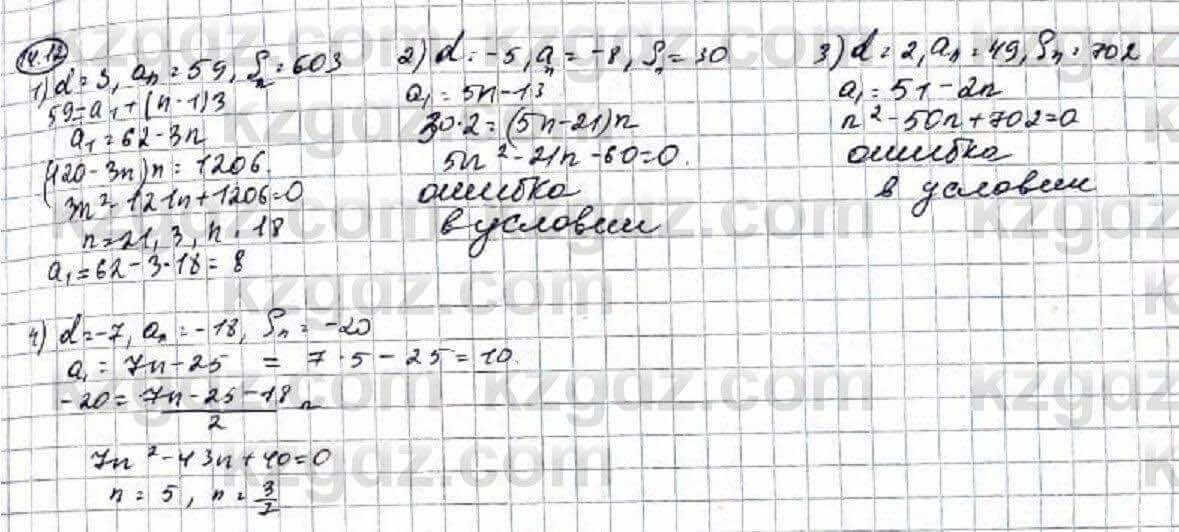 14.12
1) d = 3, aₙ = 59, Sₙ = 603
59 = a₁ + (n - 1)3
a₁ = 62 - 3n
(120 - 3n)n = 1206.
3n² - 121n + 1206 = 0
n = 21,3, n = 18
a₁ = 62 - 3·18 = 8
2) d = -5, aₙ = -8, Sₙ = 30
a₁ = 5n - 13
30·2 = (5n - 21)n
5n² - 21n - 60 = 0.
ошибка
в условии
3) d = 2, aₙ = 49, Sₙ = 702
a₁ = 51 - 2n
n² - 50n + 702 = 0
ошибка
в условии
4) d = -7, aₙ = -18, Sₙ = -20
a₁ = 7n - 25 = 7·5 - 25 = 10.
-20 = (7n - 25 - 18)/2 n
7n² - 43n + 40 = 0
n = 5, n = 3/7
kzgdz.com